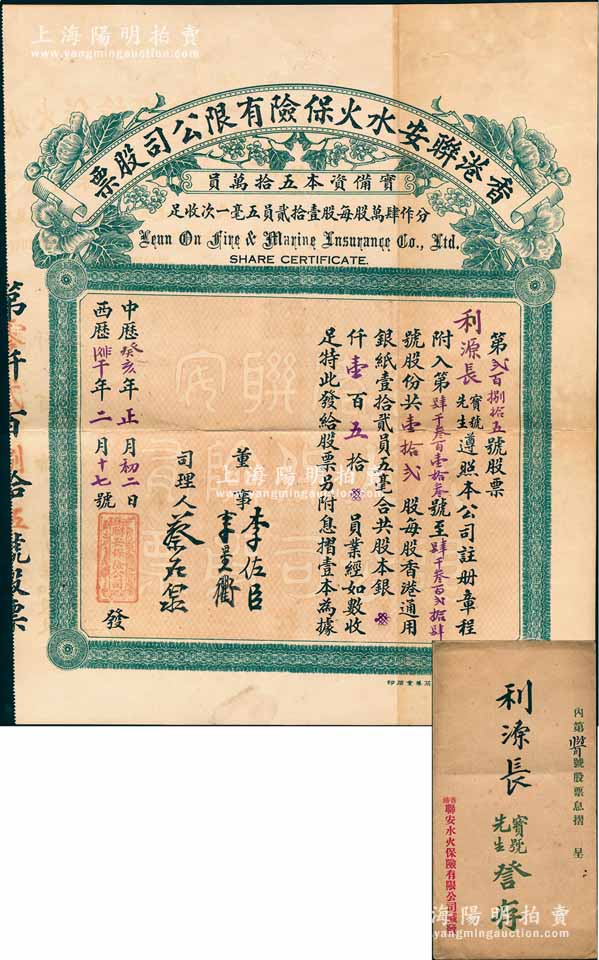 上海陽明拍賣
www.yangmingauction.com
香港聯安水火保險有限公司股票
實備資本五拾萬員
分作肆萬股每股壹拾貳員五毫一次收足
Leun On Fire & Marine Insurance Co., Ltd.
SHARE CERTIFICATE.
第弍百捌拾五號股票
利源長 寶號先生 遵照本公司註册章程
附入第肆千叁百壹拾叁號至肆千叁百弍拾肆
號股份共壹拾弍股每股香港通用
銀紙壹拾貳員五毫合共股本銀
仟壹百五拾 員業經如數收
足特此發給股票另附息摺壹本為據
董事 李佐臣
司理人
中歷癸亥年正月初二日
西歷 年二月十七號
發
第零仟弍百捌拾五號股票
上海陽明拍賣
www.yangmingauction.com
內第 號股票息摺 呈
利源長 寶號先生 詧存
香港聯安水火保險有限公司
上海陽明拍賣
www.yangmingauction.com